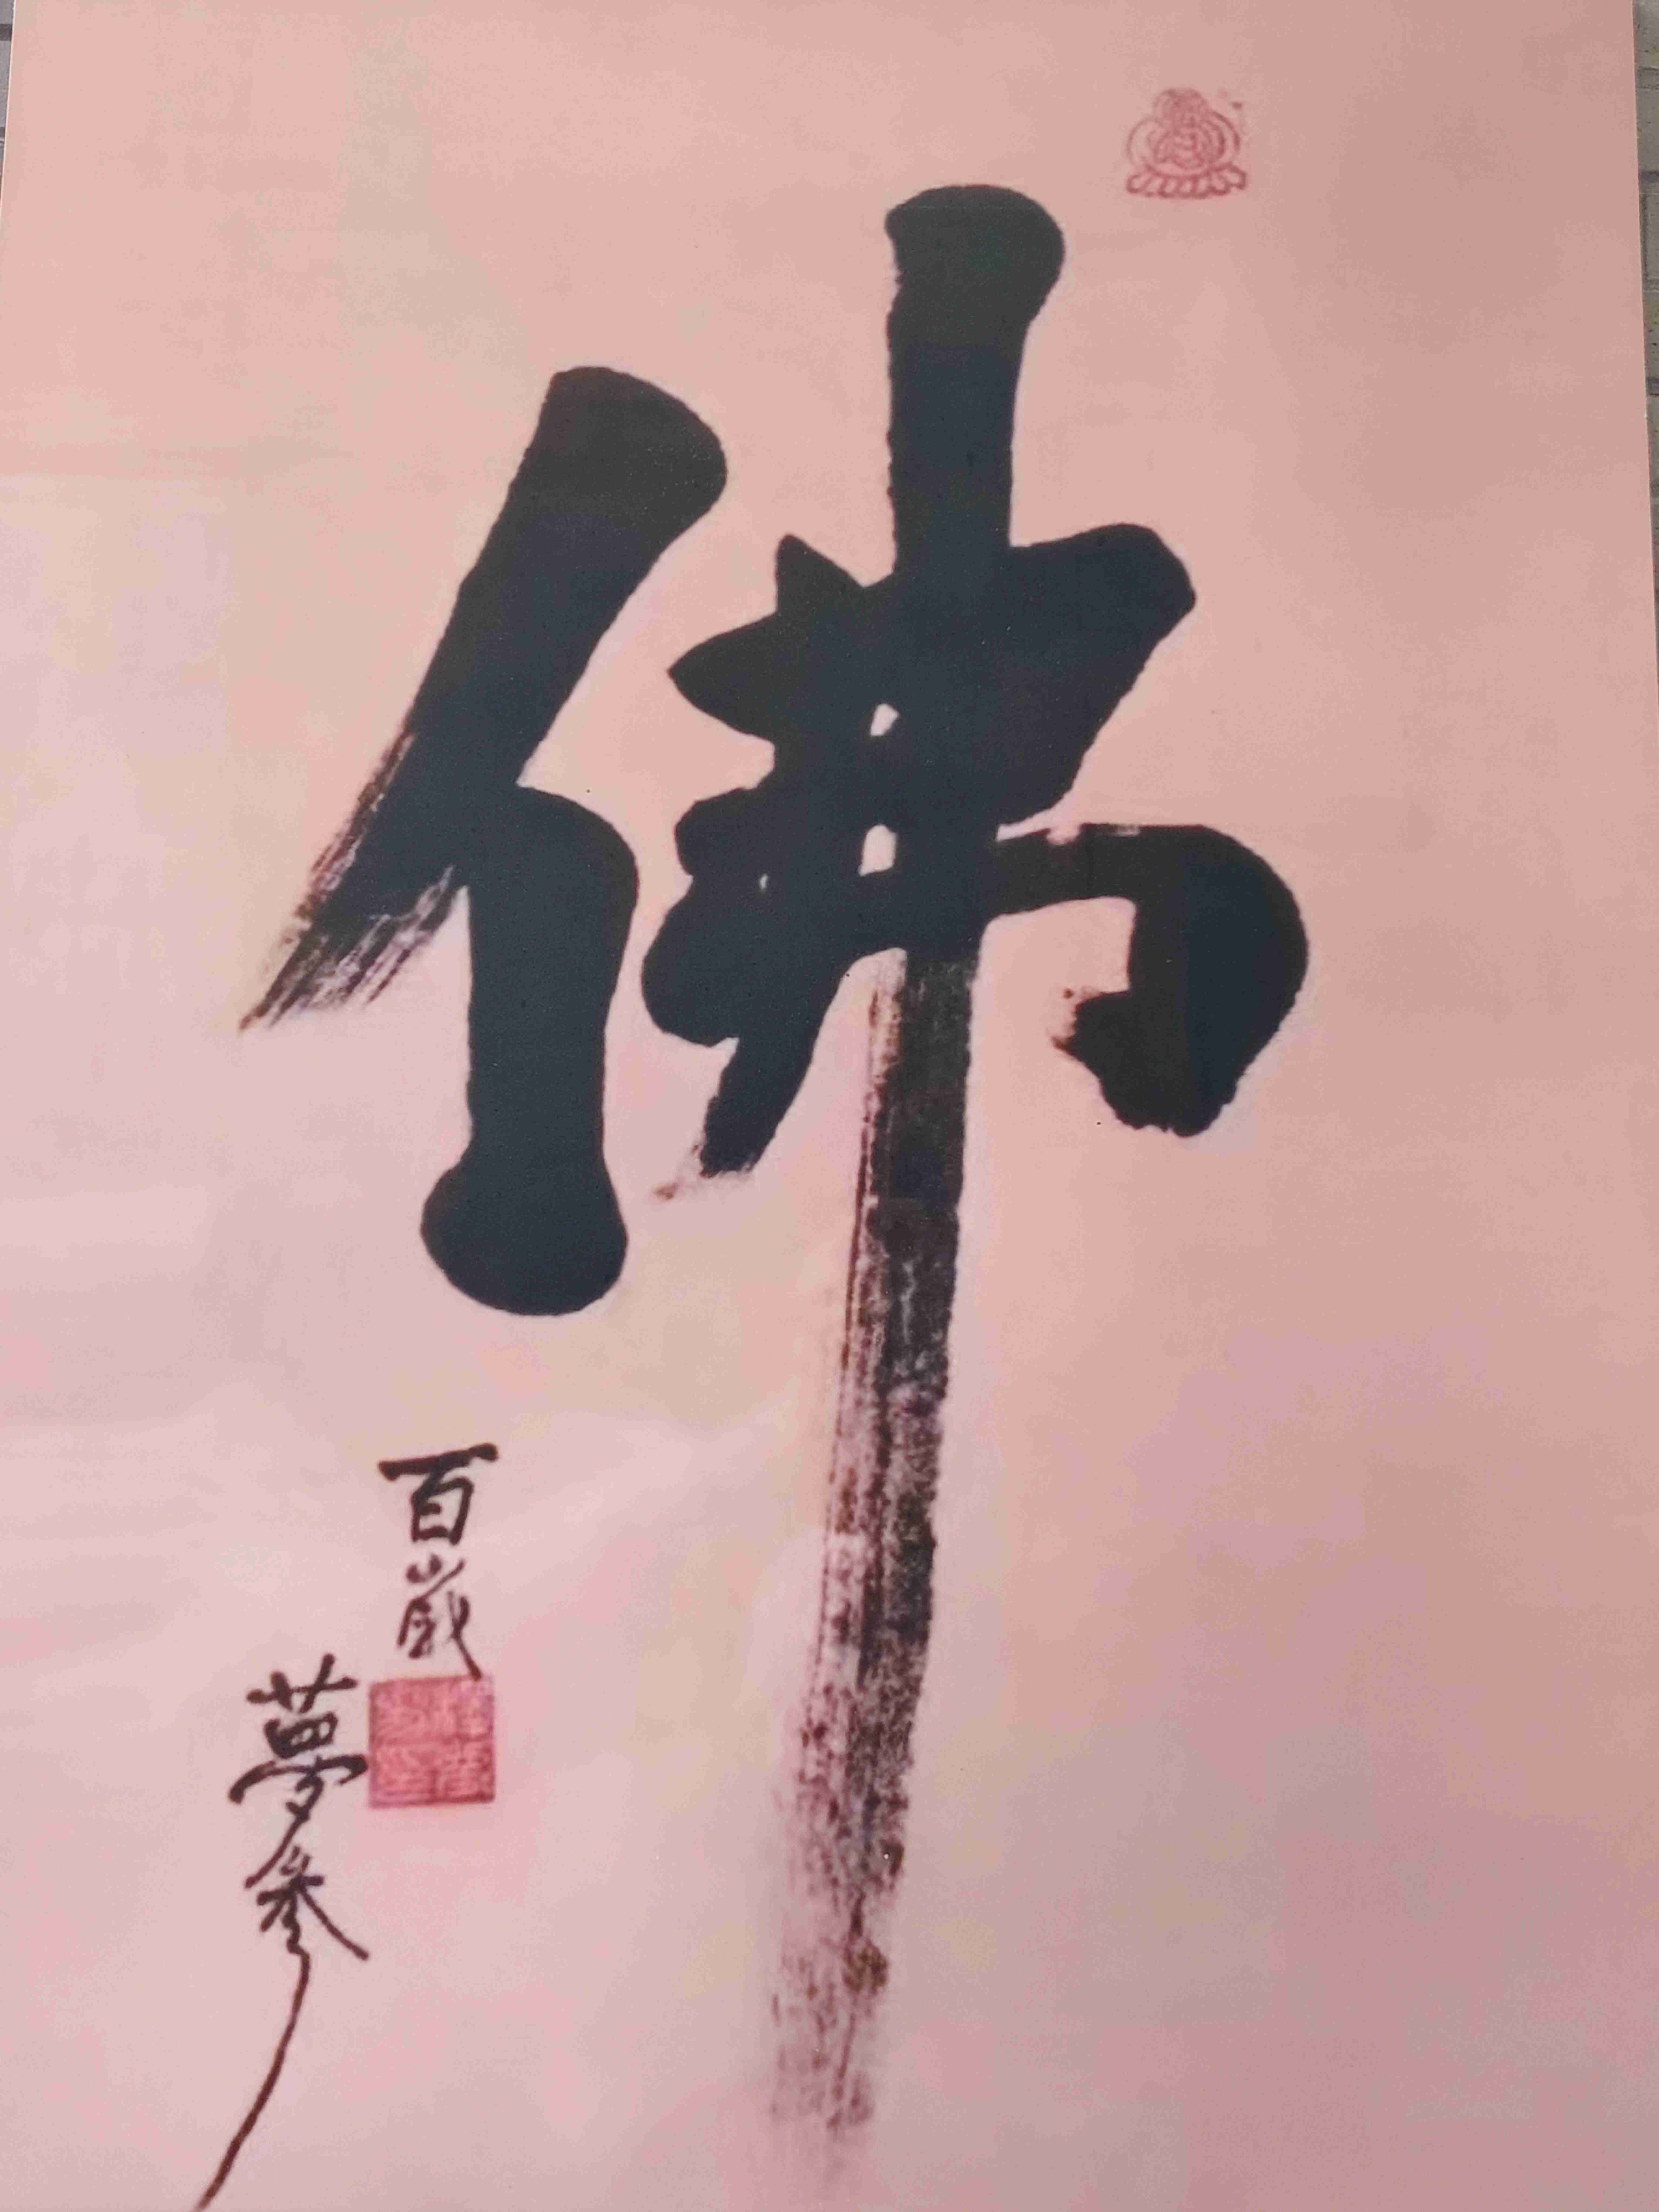 佛
百歲
夢參